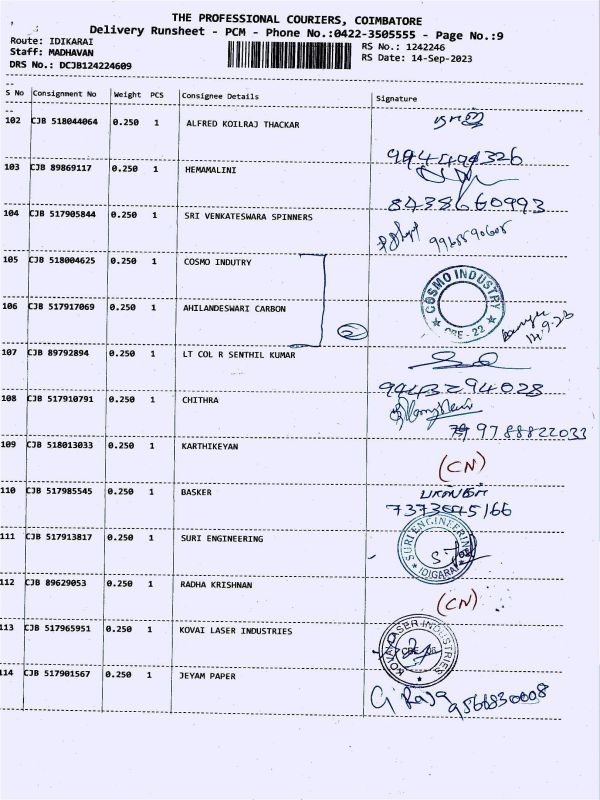 THE PROFESSIONAL COURIERS, COIMBATORE
Delivery Runsheet - PCM - Phone No.:0422-3505555 - Page No.:9
Route: IDIKARAI
Staff: MADHAVAN
DRS No.: DCJB124224609
RS No.: 1242246
RS Date: 14-Sep-2023
S No Consignment No Weight PCS Consignee Details Signature
102 CJB 518044064 0.250 1 ALFRED KOILRAJ THACKAR
103 CJB 89869117 0.250 1 HEMAMALINI
8438660993
104 CJB 517905844 0.250 1 SRI VENKATESWARA SPINNERS
105 CJB 518004625 0.250 1 COSMO INDUTRY
COSMO INDUSTRY
CBE - 22
106 CJB 517917069 0.250 1 AHILANDESWARI CARBON
2
14.9.23
107 CJB 89792894 0.250 1 LT COL R SENTHIL KUMAR
9443294028
108 CJB 517910791 0.250 1 CHITHRA
9788822033
109 CJB 518013033 0.250 1 KARTHIKEYAN
(CN)
110 CJB 517985545 0.250 1 BASKER
111 CJB 517913817 0.250 1 SURI ENGINEERING
SURI ENGINEERING
112 CJB 89629053 0.250 1 RADHA KRISHNAN
(CN)
113 CJB 517965951 0.250 1 KOVAI LASER INDUSTRIES
KOVAI LASER INDUSTRIES
114 CJB 517901567 0.250 1 JEYAM PAPER
G Raja